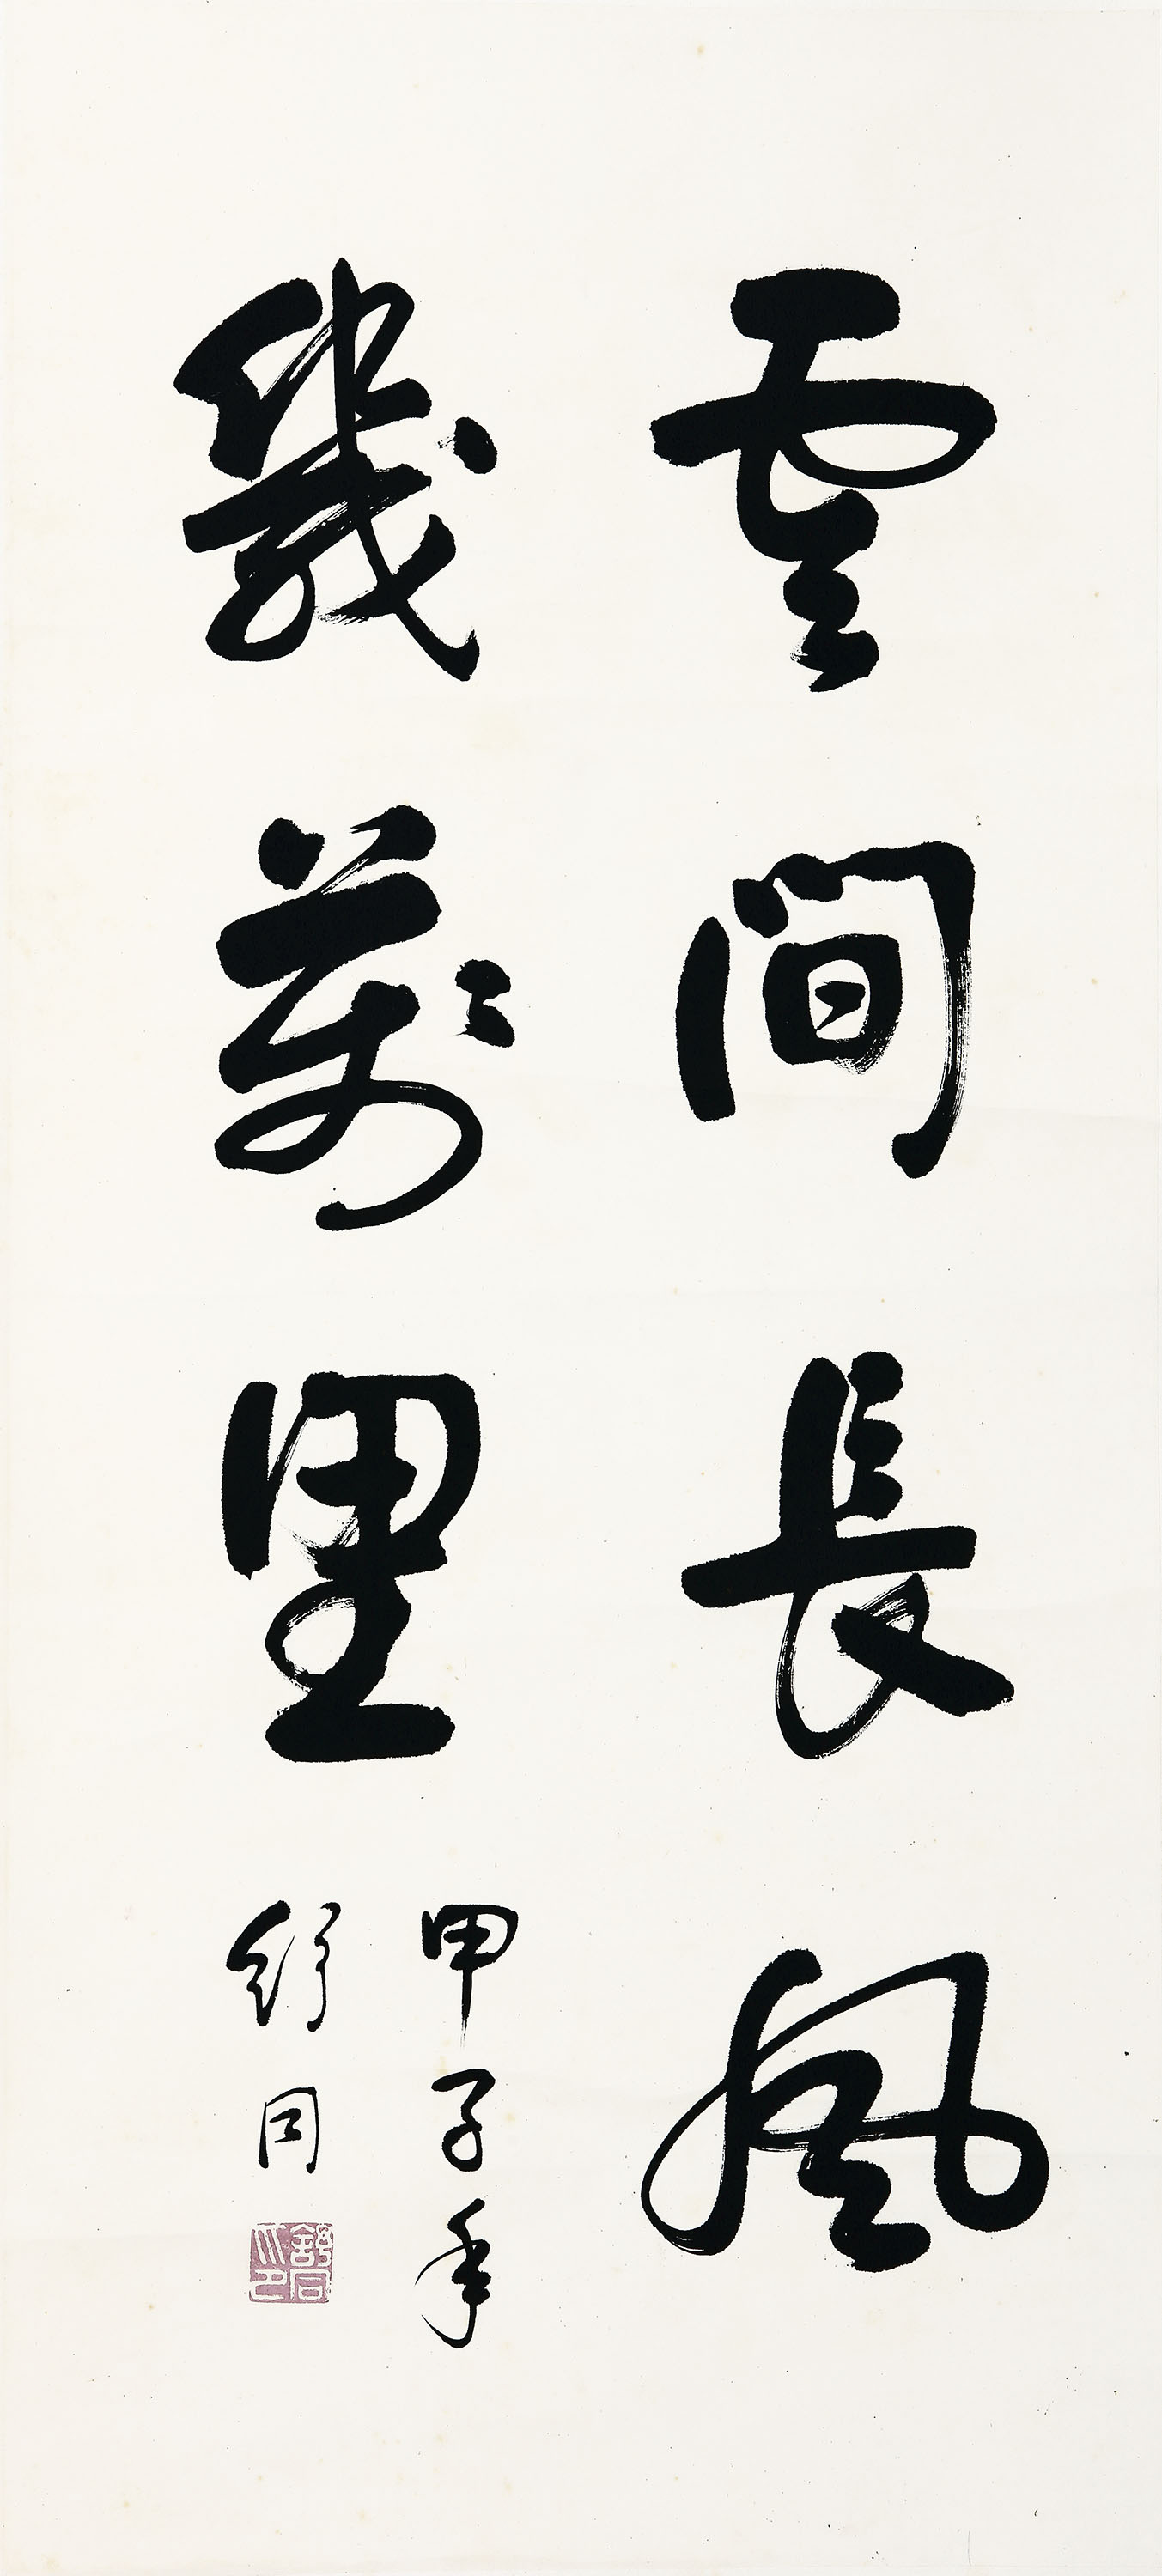 雲間長風
幾萬里
甲子年
舒同
舒同之印